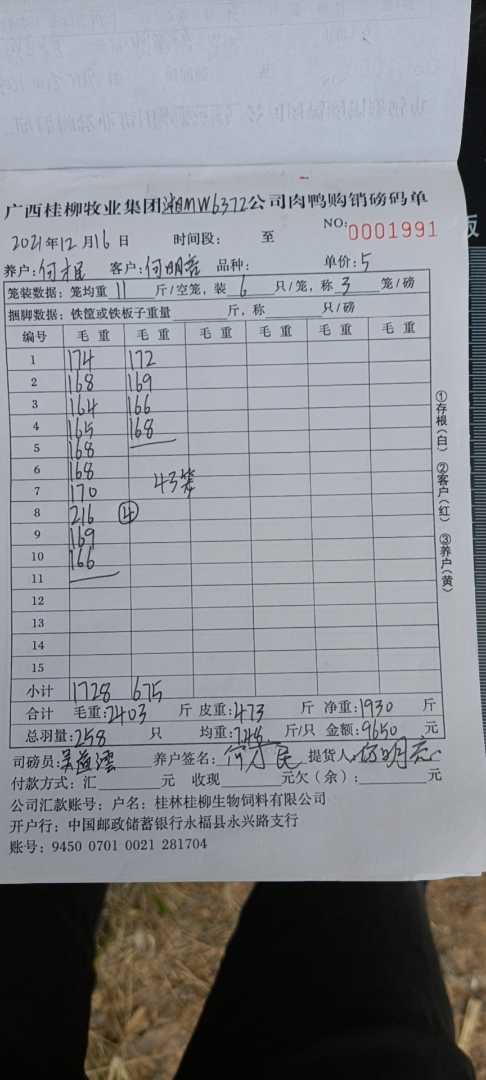 广西桂柳牧业集团湘MW6372公司肉鸭购销磅码单
NO:0001991
2021年12月16日 时间段: 至
养户: 何才民 客户: 何明亮 品种: 单价: 5
笼装数据: 笼均重 11 斤/空笼, 装 6 只/笼, 称 3 笼/磅
捆脚数据: 铁筐或铁板子重量 斤, 称 只/磅
编号 毛重 毛重 毛重 毛重 毛重 毛重
1 174 172
2 168 169
3 164 166
4 165 168
5 168
6 168
7 170 43笼
8 216 ④
9 169
10 166
11
12
13
14
15
小计 1728 675
合计 毛重:2403 斤 皮重:473 斤 净重:1930 斤
总羽量:258 只 均重:748 斤/只 金额:9650 元
司磅员: 养户签名: 何才民 提货人 何明亮
付款方式: 汇 元 收现 元欠(余): 元
公司汇款账号: 户名: 桂林桂柳生物饲料有限公司
开户行: 中国邮政储蓄银行永福县永兴路支行
账号: 9450 0701 0021 281704
①存根(白) ②客户(红) ③养户(黄)